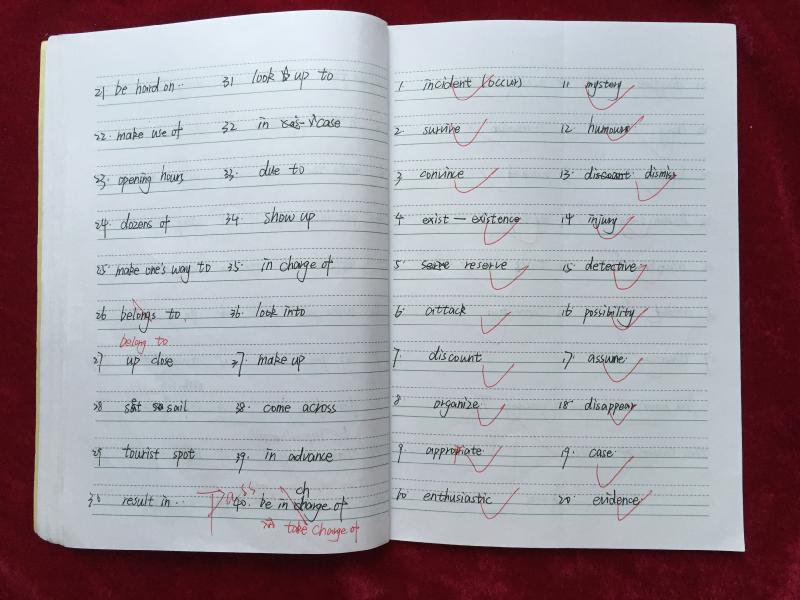 21 be hard on..
31 look up to
22. make use of
32 in case
23. opening hours
33. due to
24. dozens of
34. show up
25. make one's way to
35. in charge of
26 belongs to.
belong to
36. look into
27 up close
37. make up
28 set sail
38. come across
29 tourist spot
39. in advance
30 result in..
Pass
40. be in charge of
ch
take charge of
1. incident (occur)
11 mystery
2. survive
12. humour
3 convince
13. discount dismiss
4. exist — existence
14 injury
5. reserve
15 detective
6. attack
16 possibility
7. discount
17. assume.
8 organize
18. disappear
9. appropriate
19. case.
10. enthusiastic
20. evidence.